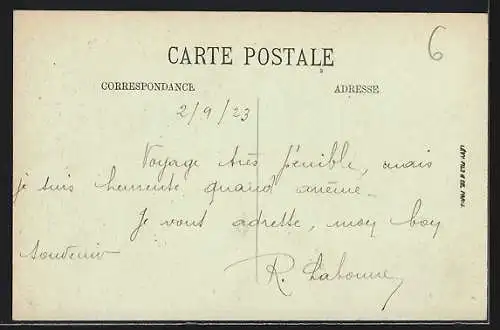 6
CARTE POSTALE
CORRESPONDANCE ADRESSE
2/9/23
Voyage très pénible, mais
je suis heureuse quand même.
Je vous adresse, mon bon
souvenir
R.
LÉVY FILS & CIE. PARIS.